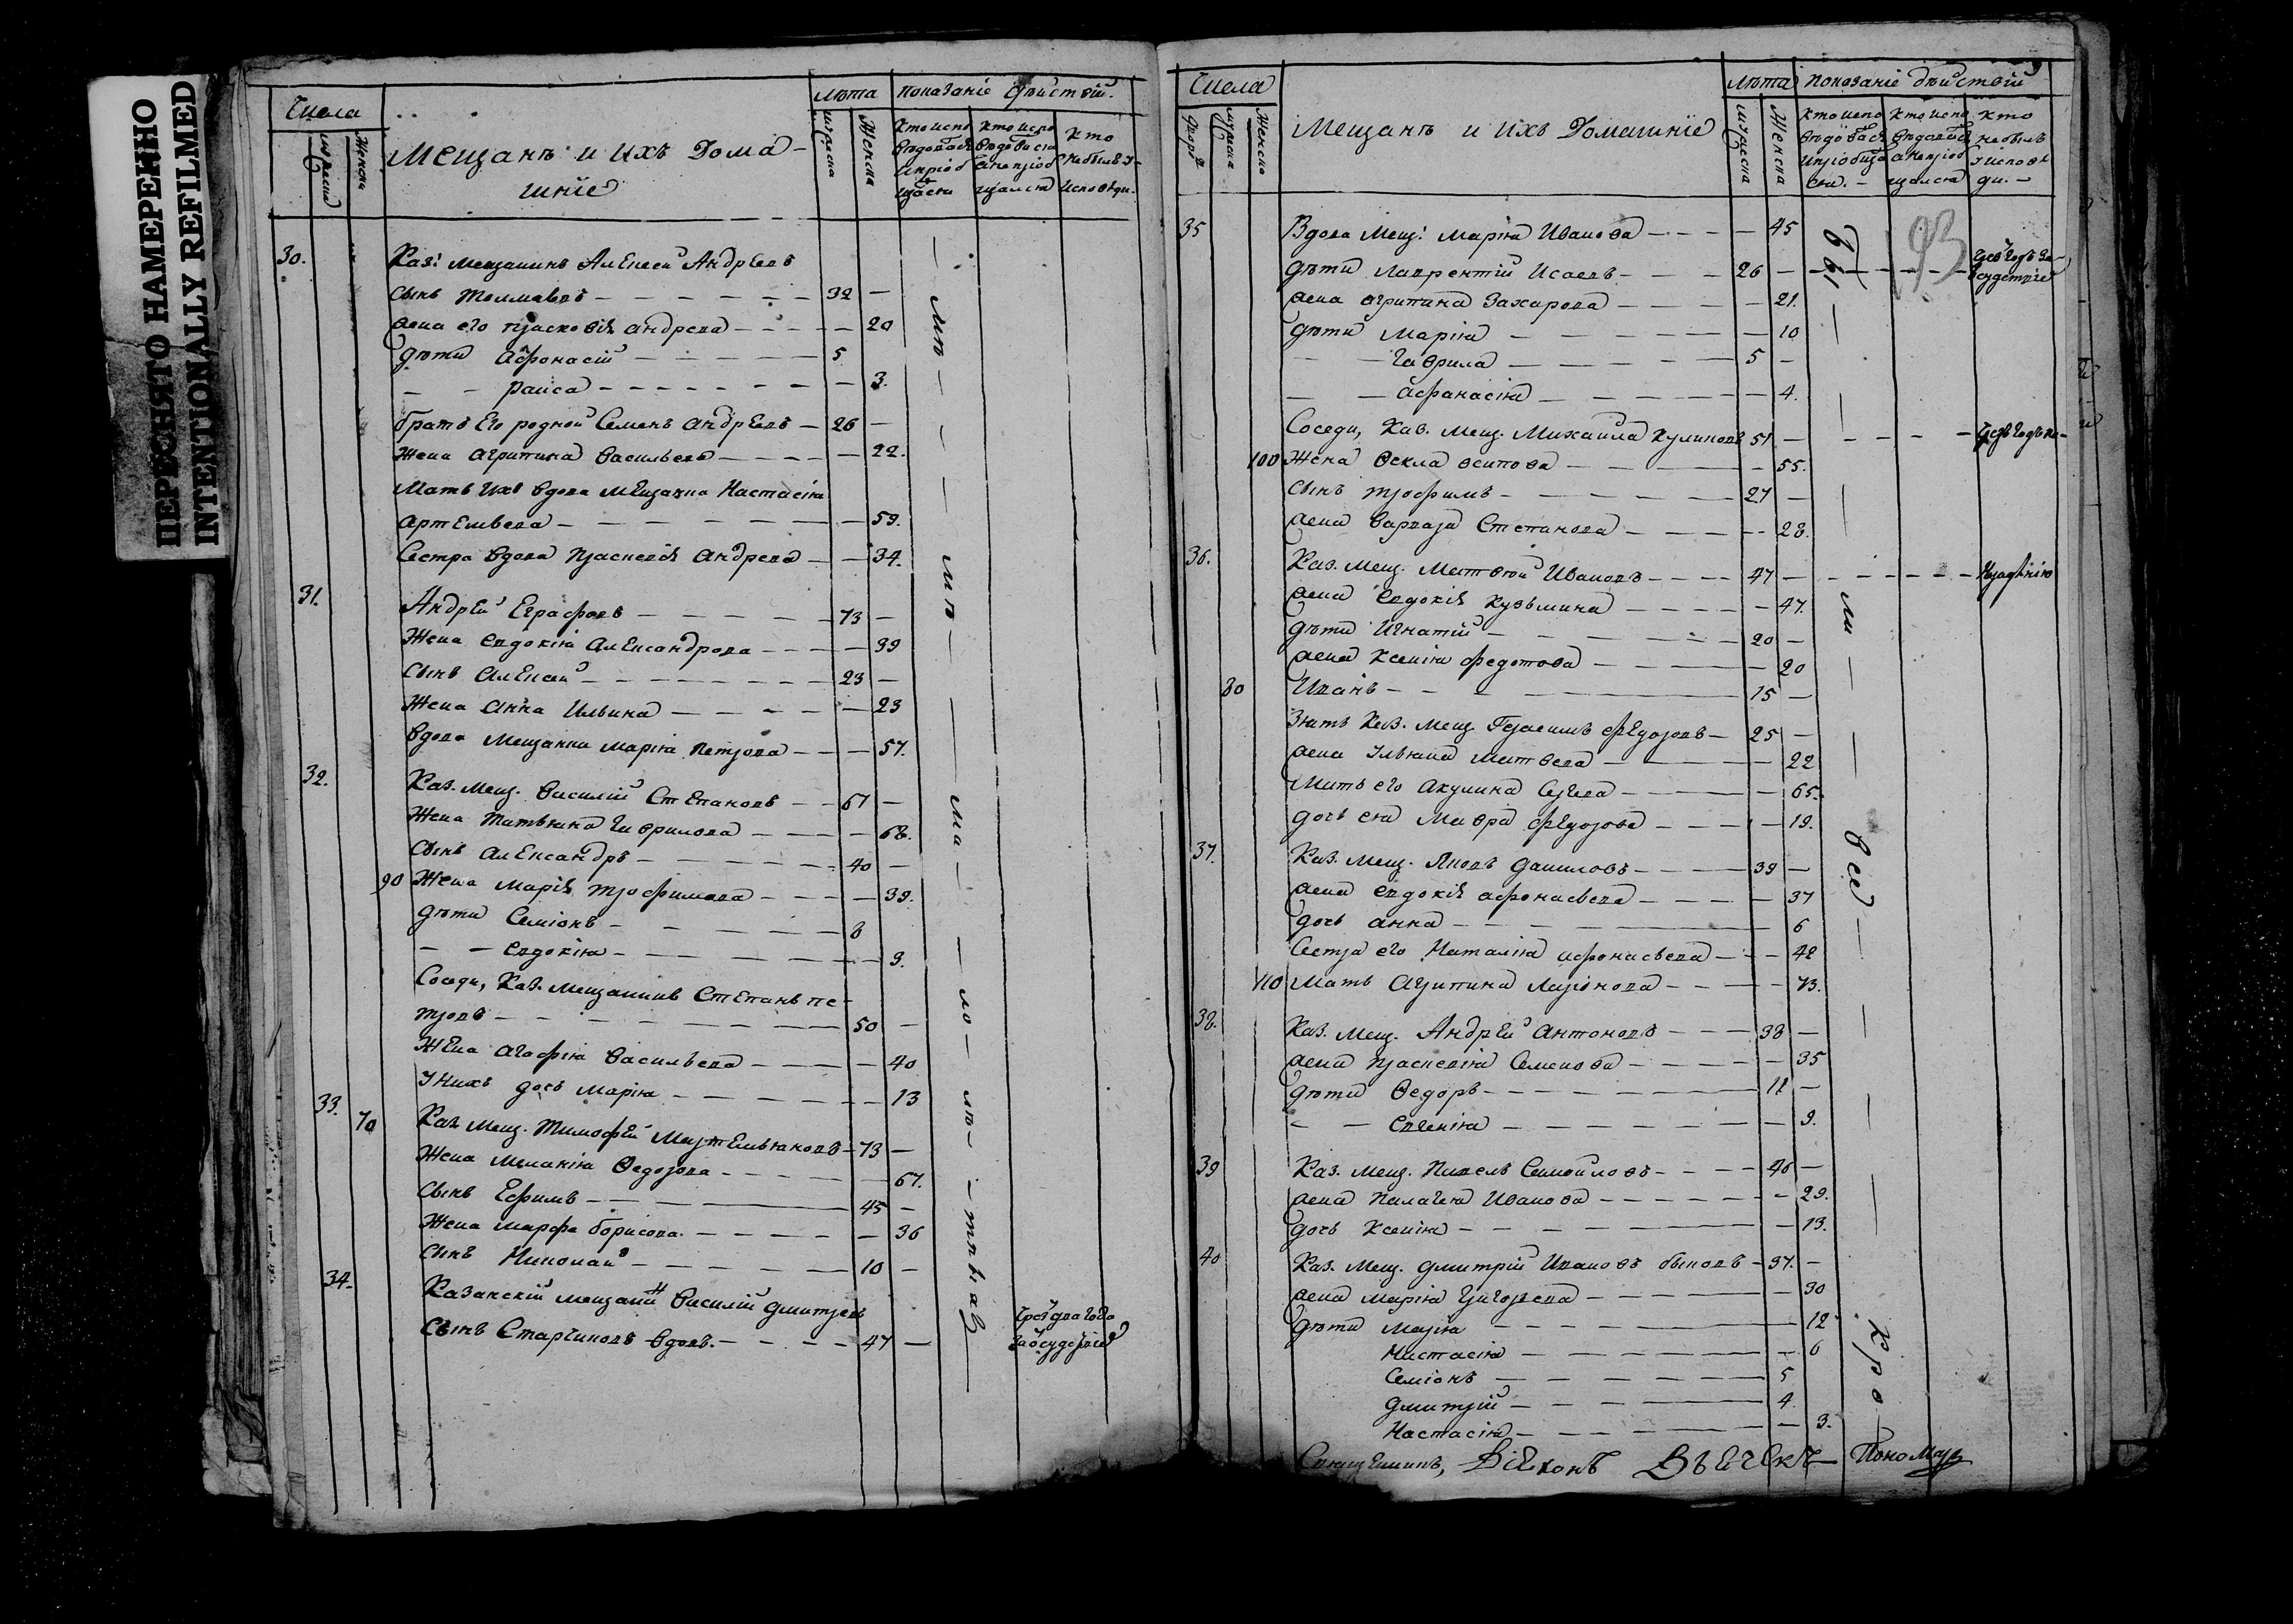 ПЕРЕСНЯТО НАМЕРЕННО
INTENTIONALLY REFILMED
Числа
Мещанъ и ихъ дома-
шніе
лѣта
показаніе дѣйствій.
мужеска
женска
мужеска
женска
кто испо
вѣдовался
и пріоб
щался
кто испо
вѣдовался
а не пріоб
щался
кто
не былъ у
исповѣди.
30. Каз: мещанинъ Алексей Андреевъ
сынъ — 32 —
жена его Прасковія Андреева — 20
дѣти Афонасій — 5
— — Раиса — 3.
братъ его родной Семенъ Андреевъ — 26 —
жена Агрипина Васильева — 22.
Мать ихъ вдова мещанка Настасія
Артемьева — 59.
Сестра вдова Прасковія Андреева — 34.
31. Андрей Еграфовъ — 73 —
Жена Евдокія Александрова — 39
сынъ Алексей — 23 —
Жена Анна Ильина — 23
вдова мещанка Марія Петрова — 57.
32. Каз. Мещ. Василій Степановъ — 67 —
Жена Татьяна Гаврилова — 68.
сынъ Александръ — 40 —
90 Жена Марія Трофимова — 39.
дѣти Семіонъ — 8
— — Евдокія — 9.
Соседи, Каз. Мещанинъ Степанъ Пе-
тровъ — 50 —
Жена Агафія Васильева — 40
У нихъ дочь Марія — 13
33. 70 Каз. Мещ. Тимофей Мартемьяновъ — 73 —
Жена Меланія Федорова — 67.
сынъ Ефимъ — 45 —
Жена Марфа Борисова — 36
сынъ Николай — 10 —
34. Казанскій мещанинъ Василій Дмитреевъ
сынъ Старчиковъ вдовъ. — 47 —
Чрез два года
за осуде
Числа
двор
мужеска
женска
Мещанъ и ихъ домашніе
лѣта
показаніе дѣйствій
мужеска
женска
кто испо
вѣдовался
и пріобща
ся. —
кто испо
вѣдовался
а не пріоб
щался
кто
не былъ
у исповѣ
ди. —
93
35 Вдова мещ: Марія Иванова — 45
дѣти Лаврентій Исаевъ — 26 —
жена Агрипина Захарова — 21.
дѣти Марія — 10
— — Гаврила — 5 —
— — Афанасія — 4.
Соседи, Каз. мещ. Михаила Куликовъ 51 —
100 Жена Фекла Осипова — 55.
сынъ Трофимъ — 27 —
жена Варвара Степанова — 28.
36. Каз. Мещ. Матвей Ивановъ — 47 —
жена Евдокія Кузьмина — 47.
дѣти Игнатій — 20 —
жена Ксенія Федотова — 20
80 Иванъ — 15 —
Зять Каз. мещ. Герасимъ Федоровъ — 25 —
жена Ульяна Матвева — 22
Мать его Акулина — 65.
дочь ея Мавра Федорова — 19.
37. Каз. Мещ. Яковъ Даниловъ — 39 —
жена Евдокія Афонасьева — 37
дочь Анна — 6
Сестра его Наталія Афонасьева — 42
110 Мать Агрипина Ларіонова — 73.
38. Каз. Мещ. Андрей Антоновъ — 38 —
жена Прасковія Семенова — 35
дѣти Федоръ — 11 —
— — Евгенія — 9.
39 Каз. Мещ. Павелъ Самойловъ — 46 —
жена Палагея Иванова — 29.
дочь Ксенія — 13.
40 Каз. Мещ. Дмитрій Ивановъ Быковъ — 37. —
жена Марія Григорьева — 30
дѣти Марія — 12
Настасія — 6
Семіонъ — 5
Дмитрій — 4.
Настасія — 3.
Священникъ, Діаконъ Дьячекъ Пономарь